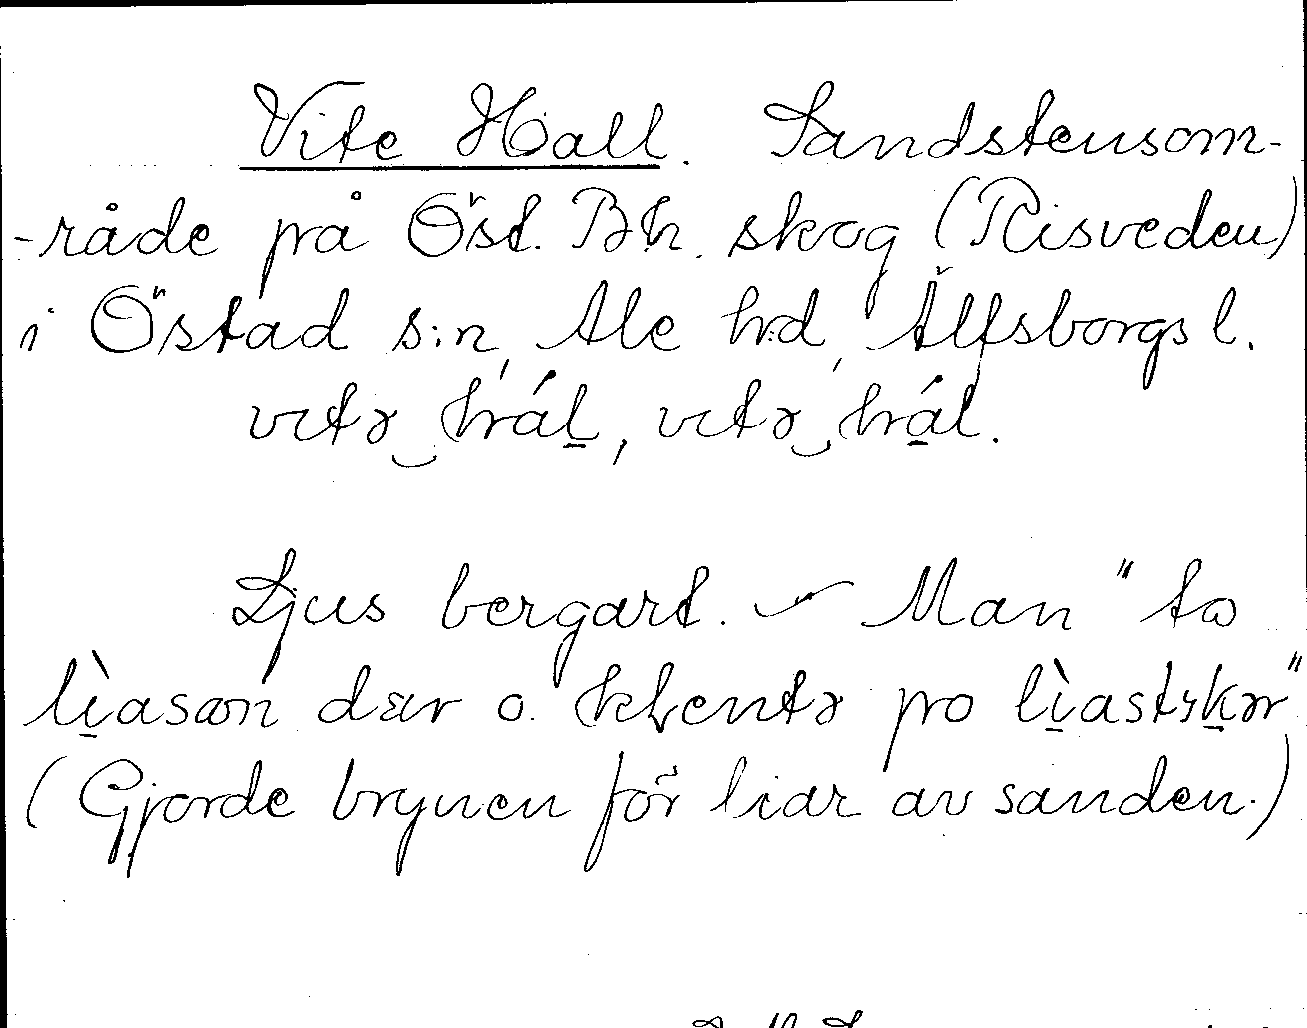 Vite Hall. Sandstensom-
-råde på Öst. Bh. skog (Risveden)
i Östad s:n, Ale h:d, Älfsborgs l.
vitə hál, vitə hál.
Ljus bergart. ‒ Man "to
lìasan dær o. klentə po lìastikər"
(Gjorde brynen för liar av sanden.)